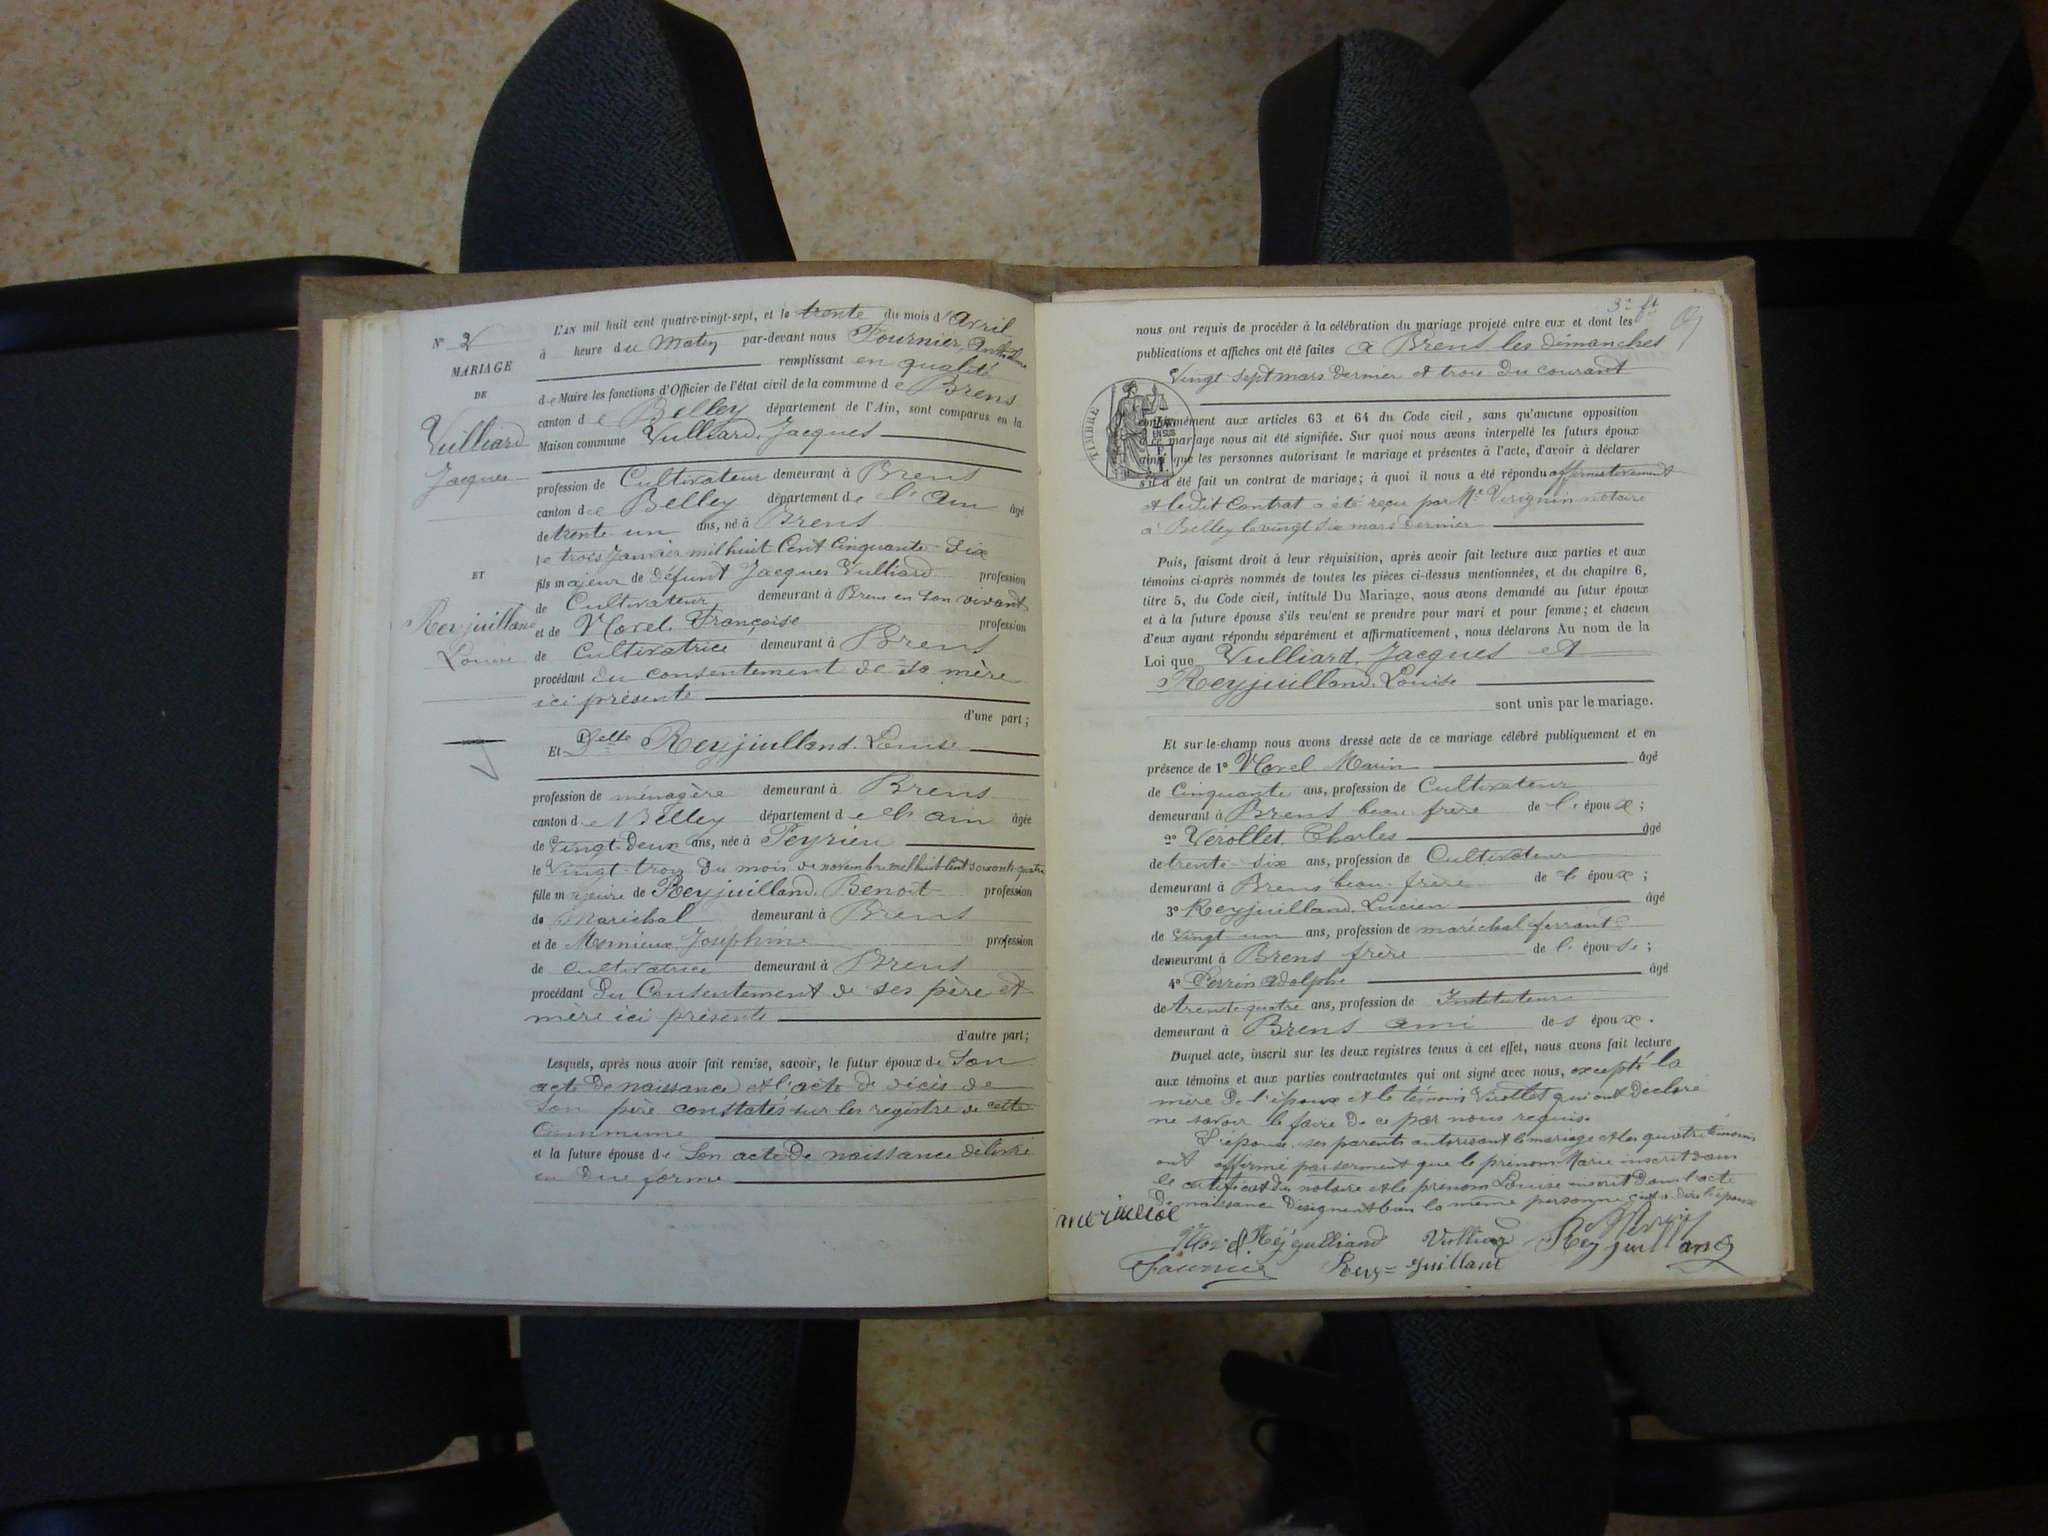 N° 2
MARIAGE
DE
Vulliard
Jacques
ET
Reyjuilland
Louise
L'AN mil huit cent quatre-vingt-sept, et le trente du mois d'avril
à heure du matin par-devant nous Fournier
remplissant en qualité
de Maire les fonctions d'Officier de l'état civil de la commune de Brens
canton de Belley département de l'Ain, sont comparus en la
Maison commune Vulliard Jacques
profession de Cultivateur demeurant à Brens
canton de Belley département de l'ain âgé
de trente un ans, né à Brens
le trois Janvier mil huit Cent Cinquante Six
fils majeur de défunt Jacques Vulliard profession
de Cultivateur demeurant à Brens en son vivant
et de Morel Françoise profession
de Cultivatrice demeurant à Brens
procédant du consentement de sa mère
ici présente
d'une part;
Et Delle Reyjuilland Louise
profession de ménagère demeurant à Brens
canton de Belley département de l'ain âgée
de Vingt Deux ans, née à Peyrieu
le Vingt trois du mois de novembre mil huit Cent soixante quatre
fille majeure de Reyjuilland Benoit profession
de Maréchal demeurant à Brens
et de Mermieux Joséphine profession
de Cultivatrice demeurant à Brens
procédant du Consentement de ses père et
mère ici présents
d'autre part;
Lesquels, après nous avoir fait remise, savoir, le futur époux de Son
acte de naissance et l'acte de décès de
son père constatés sur les registre de cette
Commune
et la future épouse de Son acte de naissance délivré
en due forme
3e ft
nous ont requis de procéder à la célébration du mariage projeté entre eux et dont les
publications et affiches ont été faites à Brens les dimanches
Vingt sept mars dernier et trois du courant
TIMBRE
conformément aux articles 63 et 64 du Code civil, sans qu'aucune opposition
à ce mariage nous ait été signifiée. Sur quoi nous avons interpellé les futurs époux
ainsi que les personnes autorisant le mariage et présentes à l'acte, d'avoir à déclarer
s'il a été fait un contrat de mariage; à quoi il nous a été répondu affirmativement
et ledit Contrat a été reçu par Me notaire
à Belley le vingt six mars dernier
Puis, faisant droit à leur réquisition, après avoir fait lecture aux parties et aux
témoins ci-après nommés de toutes les pièces ci-dessus mentionnées, et du chapitre 6,
titre 5, du Code civil, intitulé Du Mariage, nous avons demandé au futur époux
et à la future épouse s'ils veulent se prendre pour mari et pour femme; et chacun
d'eux ayant répondu séparément et affirmativement, nous déclarons Au nom de la
Loi que Vulliard Jacques et
Reyjuilland Louise
sont unis par le mariage.
Et sur-le-champ nous avons dressé acte de ce mariage célébré publiquement et en
présence de 1° Morel Marin âgé
de Cinquante ans, profession de Cultivateur
demeurant à Brens beau-frère de l'époux;
2° Vérollet Charles âgé
de trente-six ans, profession de Cultivateur
demeurant à Brens beau-frère de l'époux;
3° Reyjuilland Lucien âgé
de Vingt-un ans, profession de maréchal ferrant
demeurant à Brens frère de l'épouse;
4° Perrin Adolphe âgé
de trente-quatre ans, profession de Instituteur
demeurant à Brens ami des époux.
Duquel acte, inscrit sur les deux registres tenus à cet effet, nous avons fait lecture
aux témoins et aux parties contractantes qui ont signé avec nous, excepté la
mère de l'époux et le témoin Vérollet qui ont déclaré
ne savoir le faire de ce par nous requis.
L'épouse, ses parents autorisant le mariage et les quatre témoins
ont affirmé par serment que le prénom Marie inscrit dans
le certificat du notaire et le prénom Louise inscrit dans l'acte
de naissance désignent bien la même personne c'est-à-dire l'épouse
Vulliard
Fournier